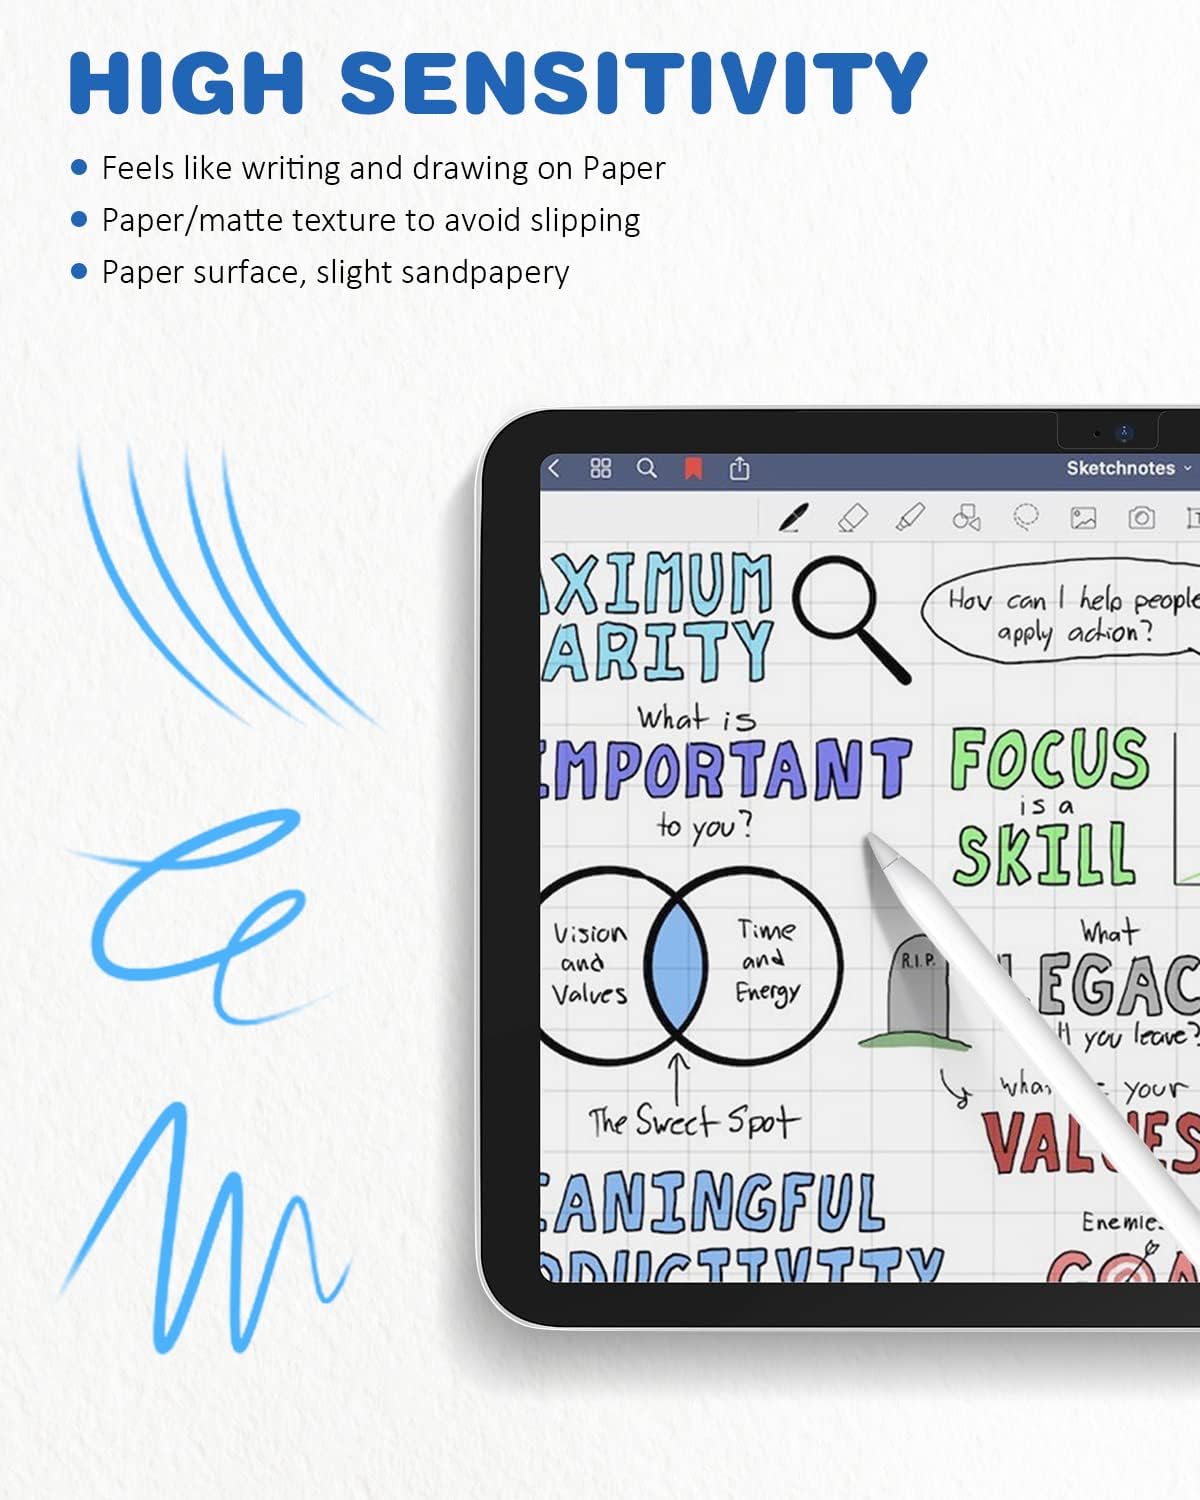 HIGH SENSITIVITY
Feels like writing and drawing on Paper
Paper/matte texture to avoid slipping
Paper surface, slight sandpapery
Sketchnotes
AXIMUM
ARITY
How can I help people
apply action?
What is
IMPORTANT
to you?
FOCUS
is a
SKILL
Vision
and
Values
Time
and
Energy
The Sweet Spot
R.I.P.
What
LEGAC
you leave?
your
VALUES
EANINGFUL
ODUCTIVITY
Enemie
GOA